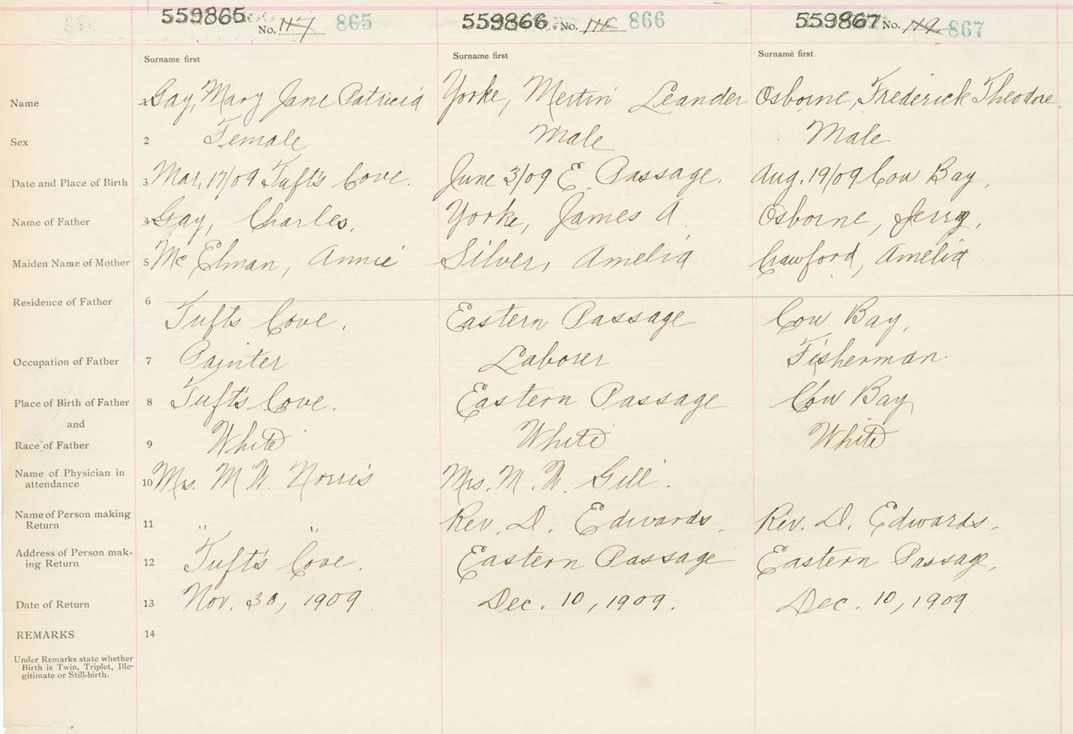 559865 No. 117 865 559866 No. 118 866 559867 No. 119 867
Surname first Surname first Surname first
Name 1 Gay, Mary Jane Patricia Yorke, Mertin Leander Osborne, Frederick Theodore
Sex 2 Female Male Male
Date and Place of Birth 3 Mar. 17/09 Tufts Cove. June 3/09 E. Passage. Aug. 19/09 Cow Bay.
Name of Father 4 Gay, Charles. Yorke, James A. Osborne, Jerry.
Maiden Name of Mother 5 McElman, Annie Silver, Amelia Crawford, Amelia
Residence of Father 6 Tufts Cove. Eastern Passage Cow Bay.
Occupation of Father 7 Painter Laborer Fisherman
Place of Birth of Father 8 Tufts Cove. Eastern Passage Cow Bay
and
Race of Father 9 White White White
Name of Physician in attendance 10 Mrs. M. W. Norris Mrs. M. W. Gill.
Name of Person making Return 11 " " Rev. D. Edwards. Rev. D. Edwards.
Address of Person making Return 12 Tuft's Cove. Eastern Passage Eastern Passage.
Date of Return 13 Nov. 30, 1909 Dec. 10, 1909. Dec. 10, 1909
REMARKS 14
Under Remarks state whether
Birth is Twin, Triplet, Ille-
gitimate or Still-birth.